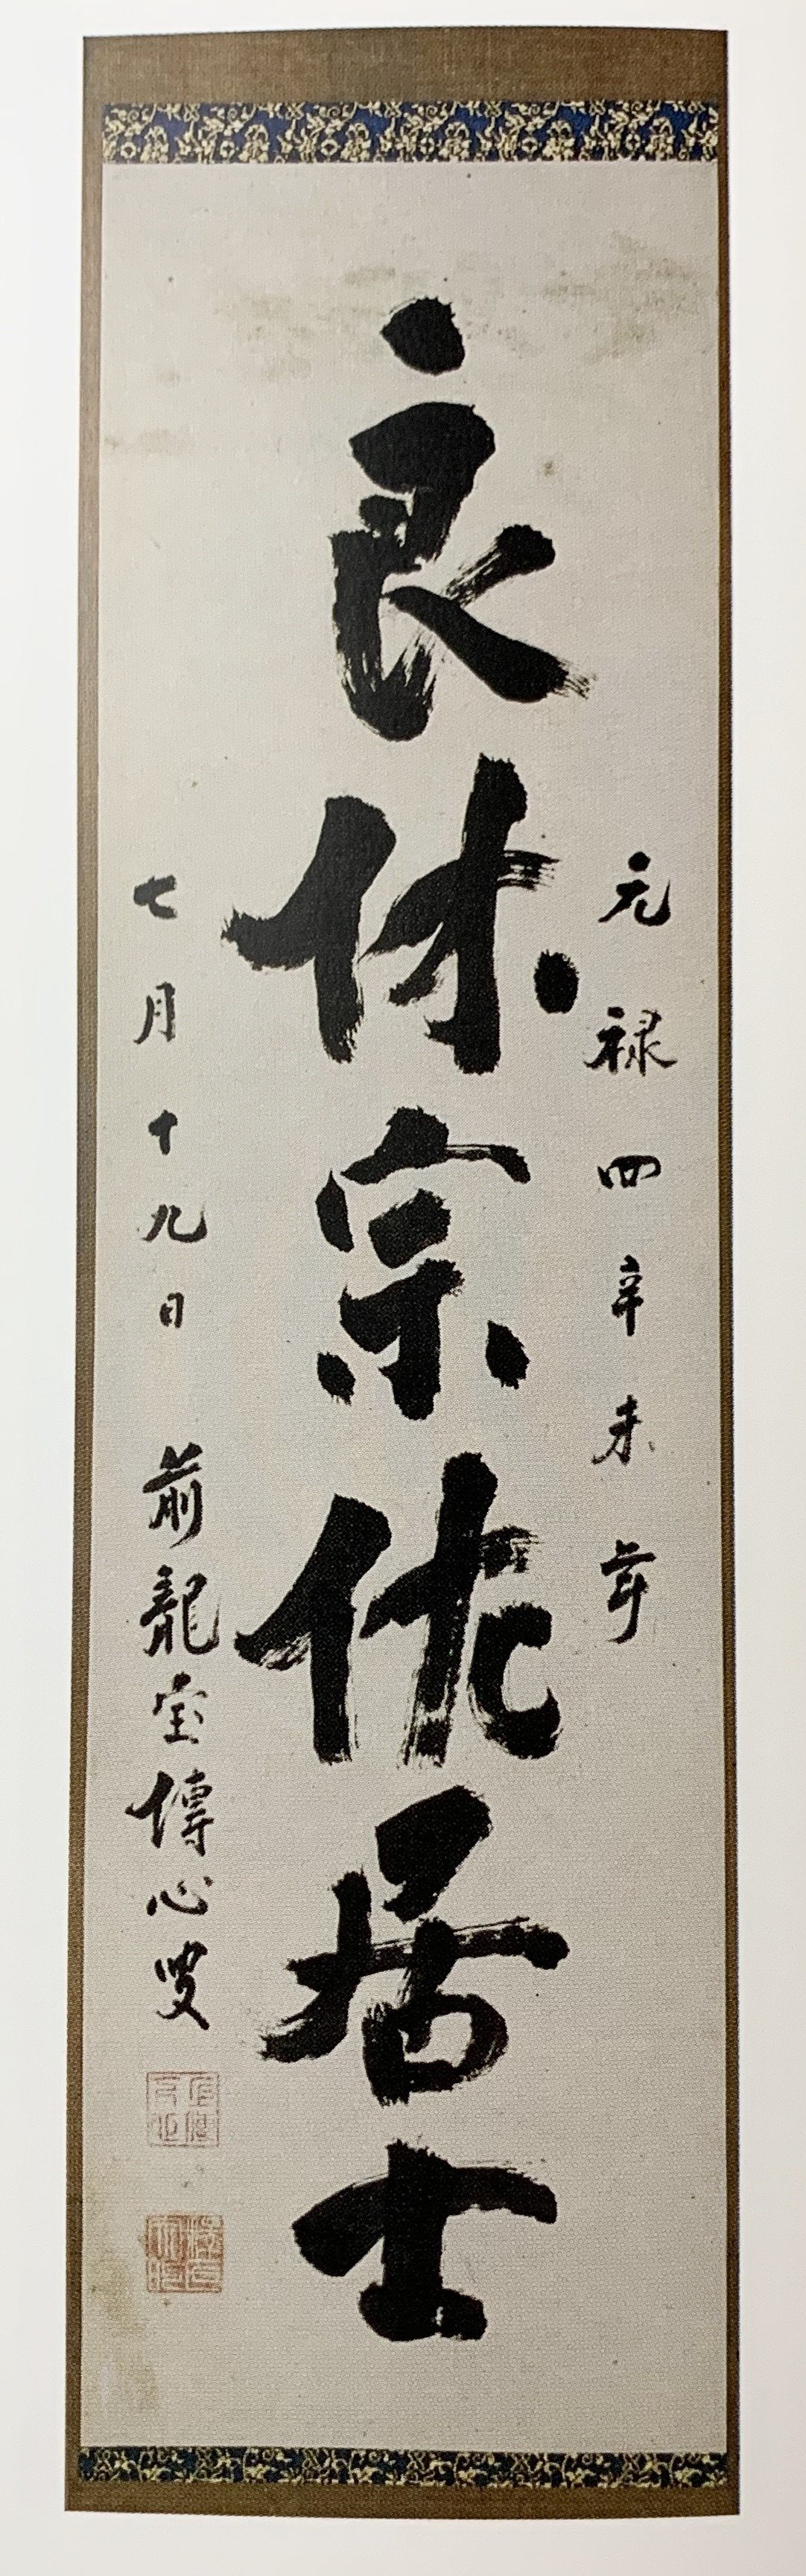 元禄四辛未年
良休宗佐居士
七月十九日 前龍宝傳心叟